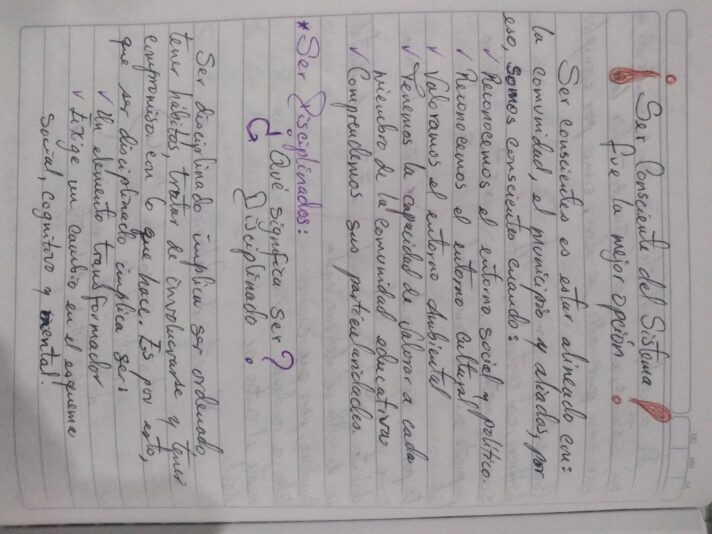 ¡Ser Consciente del Sistema
fue la mejor opción!
Ser conscientes es estar alineado con:
la comunidad, el municipio y aliados, por
eso, somos conscientes cuando:
✓ Reconocemos el entorno social y político.
✓ Reconocemos el entorno cultural
✓ Valoramos el entorno Ambiental
✓ Tenemos la capacidad de valorar a cada
miembro de la comunidad educativa
✓ Comprendemos sus particularidades.
* Ser Disciplinados:
¿Qué significa ser
Disciplinado?
Ser disciplinado implica ser ordenado
tener hábitos, tratar de involucrarse y tener
compromiso con lo que hace. Es por esto,
que ser diciplinado implica ser:
✓ Un elemento transformador
✓ Exige un cambio en el esquema
social, cognitivo y mental!